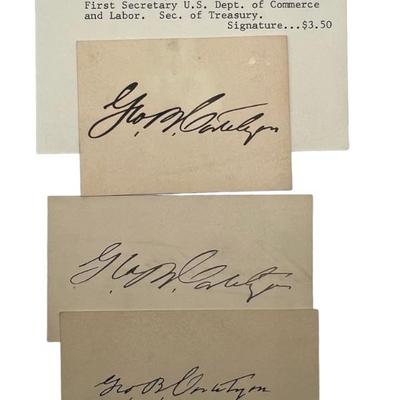 First Secretary U.S. Dept. of Commerce
and Labor.  Sec. of Treasury.
Signature...$3.50
Geo. B. Cortelyou
Geo. B. Cortelyou
Geo. B. Cortelyou